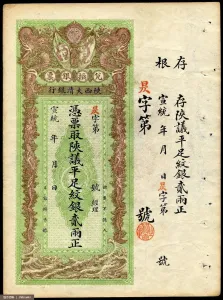 存根
存陝議平足紋銀貳兩正
宣統 年 月 日昃字第 號
昃字第 號
陝西大清銀行
昃字第 號 經理
憑票取陝議平足紋銀貳兩正
宣統 年 月 日